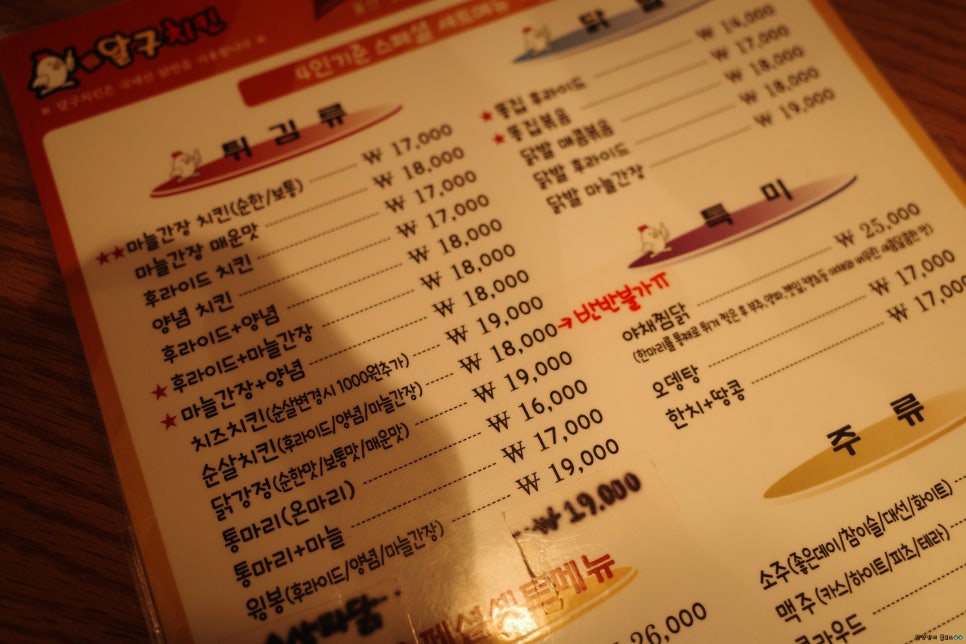 달구치킨
4인기준 스페셜 세트메뉴
튀김류
★★마늘간장 치킨(순한/보통) ₩ 17,000
마늘간장 매운맛 ₩ 18,000
후라이드 치킨 ₩ 17,000
양념 치킨 ₩ 17,000
후라이드+양념 ₩ 18,000
★후라이드+마늘간장 ₩ 18,000
★마늘간장+양념 ₩ 18,000
치즈치킨(순살변경시 1000원추가) ₩ 19,000
순살치킨(후라이드/양념/마늘간장) ₩ 18,000 → 반반불가ㅠ
닭강정(순한맛/보통맛/매운맛) ₩ 19,000
통마리(온마리) ₩ 16,000
통마리+마늘 ₩ 17,000
윙봉(후라이드/양념/마늘간장) ₩ 19,000
순살파닭 ₩ 19,000
★똥집 후라이드
★똥집볶음 ₩ 17,000
닭발 매콤볶음 ₩ 18,000
닭발 후라이드 ₩ 18,000
닭발 마늘간장 ₩ 19,000
특미
야채찜닭 ₩ 25,000
오뎅탕 ₩ 17,000
한치+땅콩 ₩ 17,000
주류
소주(좋은데이/참이슬/대선/화이트)
맥주(카스/하이트/피츠/테라)
셋트메뉴
26,000